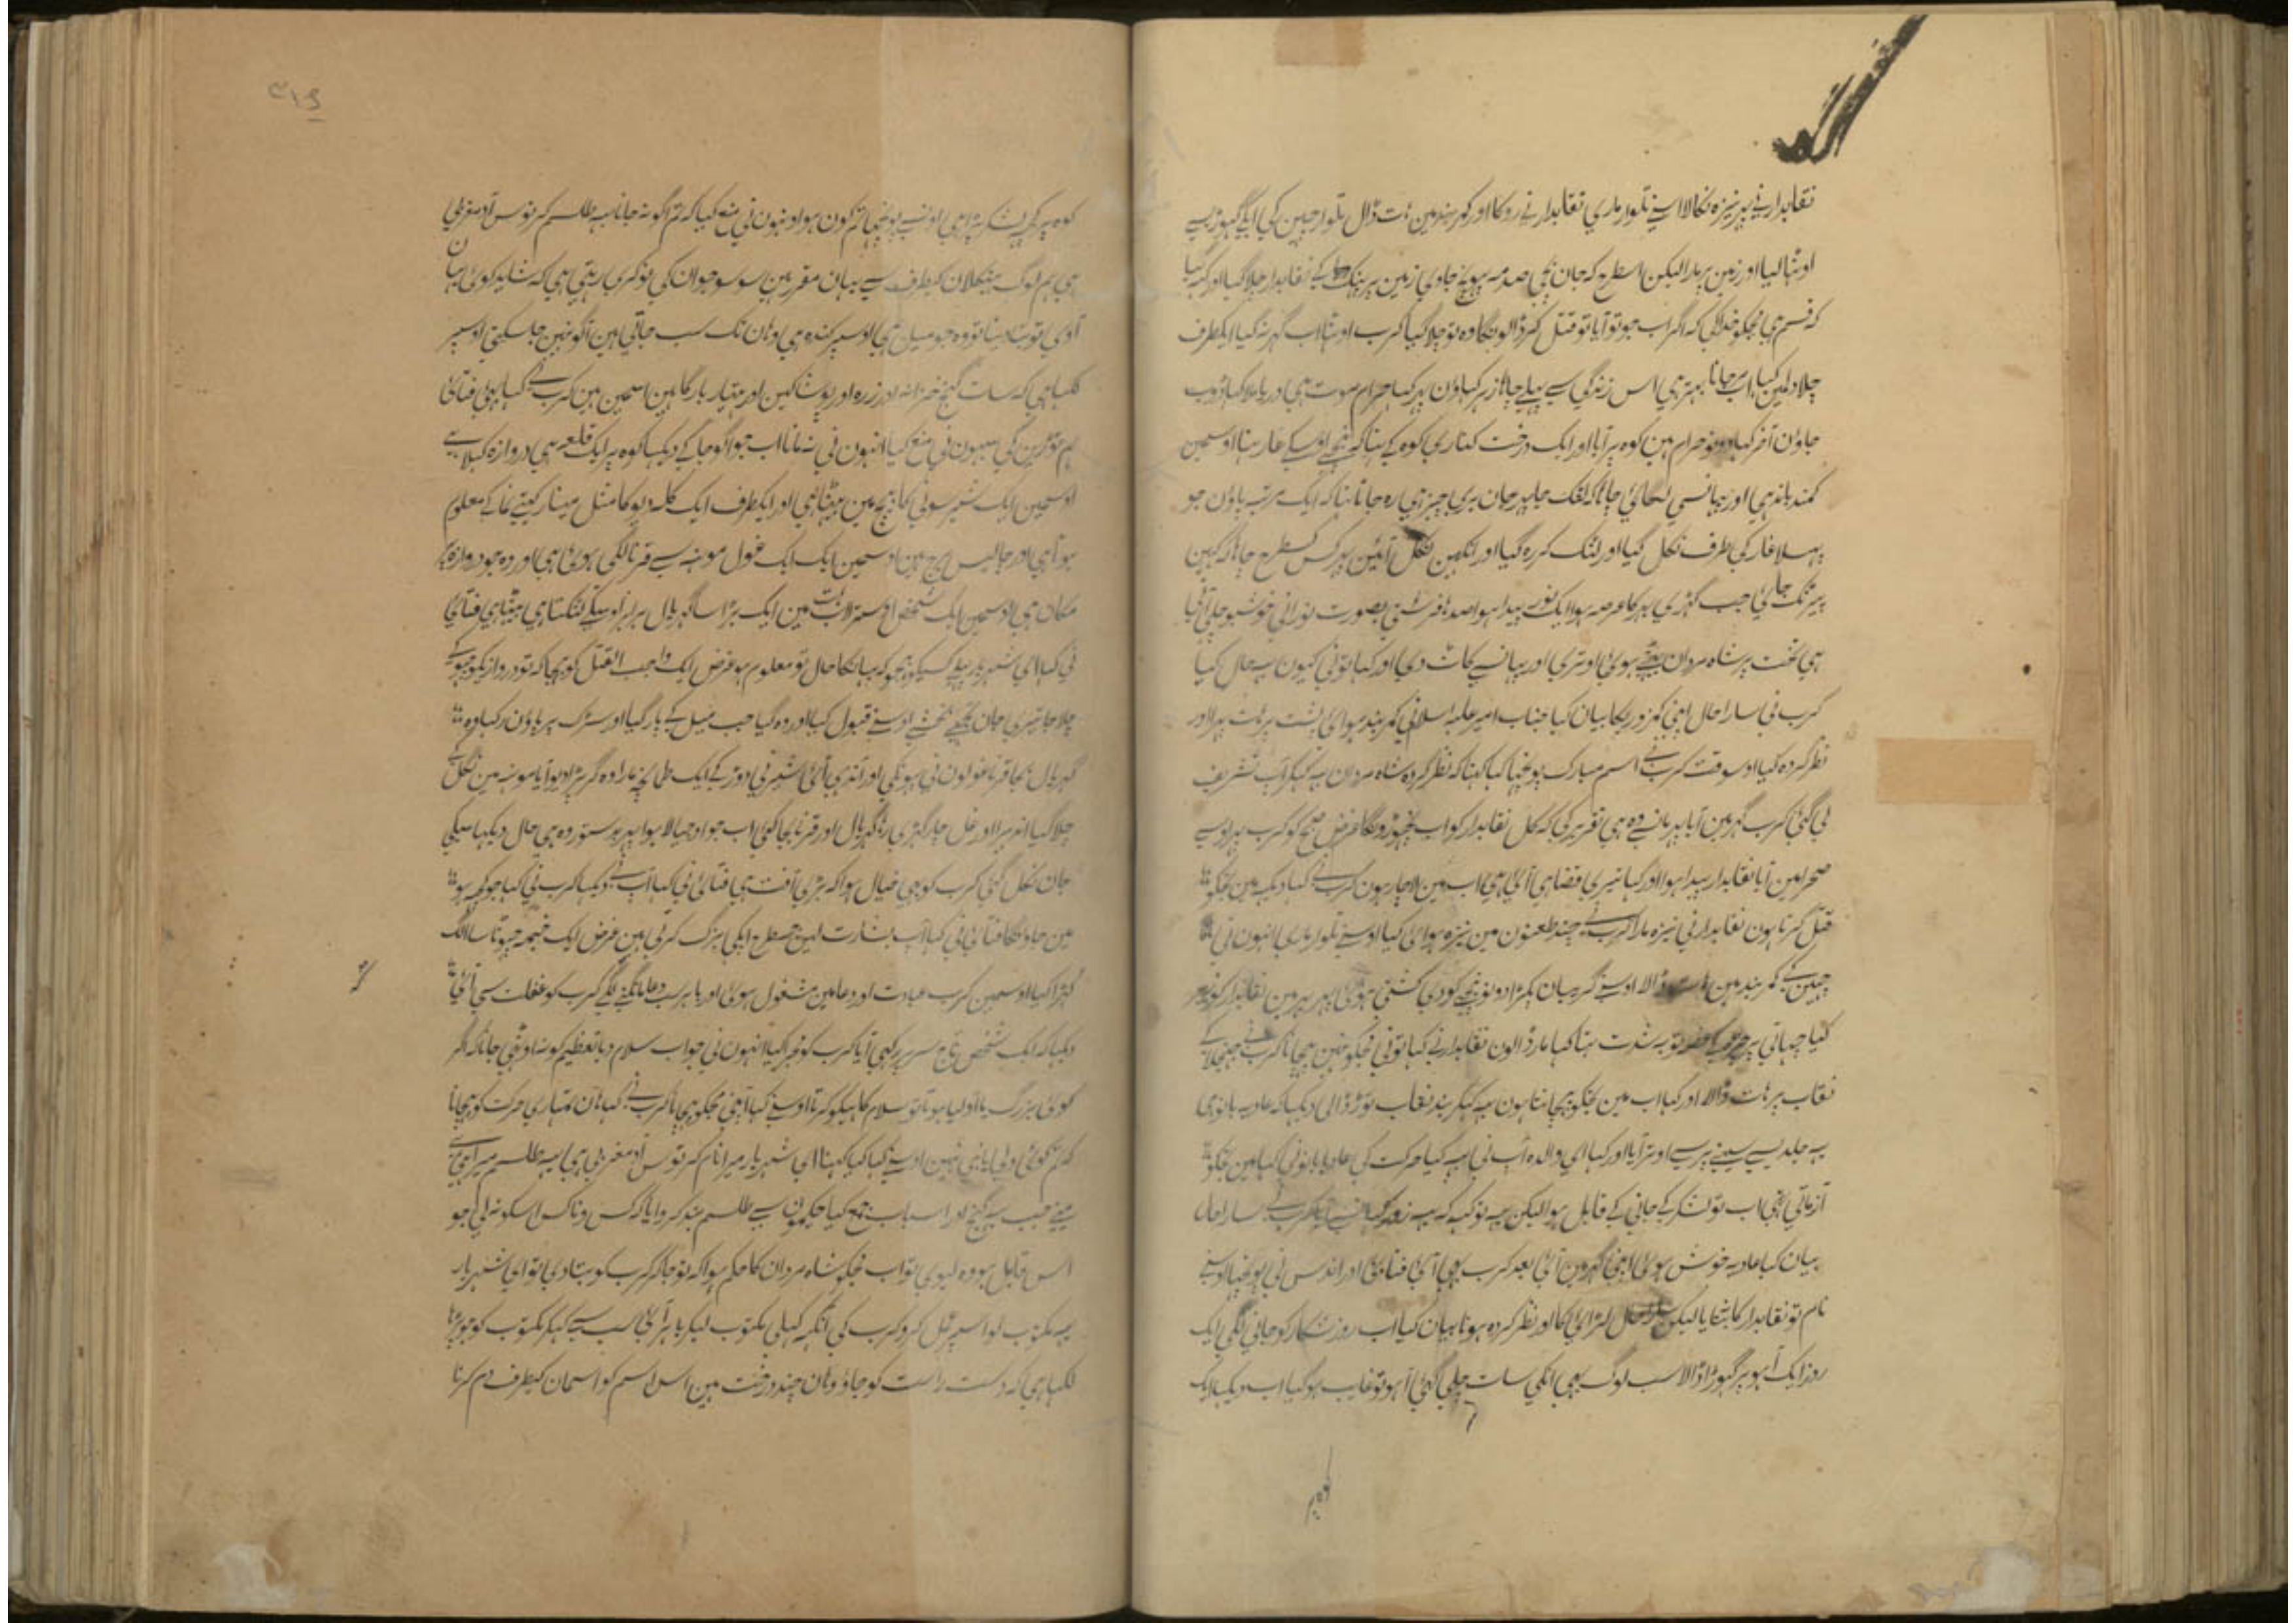 نقابدار نے پہر نیزہ نکالا اسنے تلوار ماری نقابدار نے روکا اور کمربند مین ہت ڈال تلوار چہین کی
اوٹہا لیا اور زمین پر مارا لیکن اسطرح کہ جان بچی صدمہ نہ پہونچ جاوی زمین پر نقابدار چلا گیا اور کہہ گیا
کہ قسم ہی مجکو خدا کی کہ اگر اب جو تو آیا تو قتل کر ڈالونگا وہ تو چلا گیا کرب اوٹہا اب گہر نہ گیا ایکطرف
چلا دلمین کہا اب مر جانا بہتر ہی اس زندگی سے پہلے چاہا زہر کہاؤن پہر کہا حرام موت ہی دریا مین کہا ڈوب
جاؤن آخر کہا دونو حرام ہین کوہ پر آیا اور ایک درخت کناری کوہ کے تہا کہ نیچے اوسکے غار تہا اوسمین
کمند باندہی اور پہانسی لگائی چاہا کہ لٹک جان بری چیز ہی رہ جاتا تہا کہ ایک مرتبہ پاؤن جو
پہسلا غار کی طرف نکل گیا اور لٹک کر رہ گیا اور آنکہین نکل آئین
جب گہڑی بہر کا عرصہ ہوا ایک نور پیدا ہوا صدہا فرشتی بصورت نورانی خوشبو چلی آتی
ہی تخت پر شاہ مردان بیٹہی ہوئی اوتری اور پہانسے کاٹ دی اور کہا تونی کیون یہ حال کیا
کرب نی سارا حال اپنی کمزوریکا بیان کیا جناب امیر علیہ السلام نی کمر بندہوائی پشت پر ہت پہرا اور
نظر کردہ کیا اوسوقت کرب نے اسم مبارک پوچہا کہا کہنا کہ نظر کردہ شاہ مردان یہ کہکر آپ تشریف
لی گئی کرب گہر مین آیا پہر مانسے وہ ہی تقریر کی کہ کل نقابدار کو اب نچہوڑونگا غرض صبح کو کرب پہر اوسے
صحرا مین آیا نقابدار پیدا ہوا اور کہا تیری قضا ہی آئی ہی اب مین لاچار ہون کرب نے کہا دیکہ مین تجکو
قتل کرتا ہون نقابدار نی نیزہ مارا کرب نے چند طعنون مین نیزہ ہوائی کیا اوسنے تلوار ماری انہون نی
چہین کے کمربند مین ہت ڈالا اوسنے گریبان پکڑا دونو نیچے کودی کشتی ہوئی پہر مین نقابدار کو زیر
کیا چہاتی پر غصہ تو بہ شدت تہا کہا مار ڈالون نقابدار نے کہا تونی مجکو نہین پہچانا کرب نے جہنجلا کے
نقاب پر ہات ڈالا اور کہا اب مین تجکو پہچانتا ہون یہ کہکر بند نقاب توڑ ڈالی دیکہا کہ عادیہ بانو ہی
یہ جلدیسے سینے پر سے اوتر آیا اور کہا ای والدہ آپ نی یہ کیا حرکت کی عادیہ بانو نی کہا مین تجکو
آزماتی تہی اب تو لشکر کے جانی کے قابل ہوا لیکن یہ تو کہہ کہ یہ زور کہانسے کرب نے سارا حال
بیان کیا عادیہ خوش ہوئی اپنی گہر مین آئی بعد کرب بہی آئی فتاحی اور اندس نی پوچہا اوسنے
نام تو نقابدار کا نہ بتایا لیکن سارا حال لڑائی کا اور نظر کردہ ہونا بیان کیا اب روز شکار کو جانی لگی ایک
روز ایک آہو پر گہوڑا ڈالا سب لوگ بہی انکی سات چلی گئی آہو تو غایب ہو گیا اب دیکہا ایک
کوہ پر
کوہ پر کچہ لشکر پڑا ہی اونسے پوچہا تم کون ہو اونہون نی منع کیا کہ تم آگو نہ جانا یہ طلسم کرتوس آدمغربی
ہی ہم لوگ کیطرف سے یہان مقرر ہین سو سو جوان کی نوکری رہتی ہی کہ شاید کوئی یہان
آوی تو بتا دینا تو وہ جو میل ہی اوسپر کندہ ہی وہان تک سب جاتی ہین آگو نہین جا سکتی اوسپر
لکہا ہی کہ سات گنج خزانہ اور زرہ اور پوشاکین اور ہتیار بارگاہین اسمین ہین کرب نے کہا بہئی فتاحی
ہم توڑین گی سبہون نی منع کیا انہون نی نہ مانا اب جو آگو جا کے دیکہا کوہ پر ایک قلعہ ہی دروازہ کہلا ہے
اوسمین ایک شیر سونی کا بیچ مین بیٹہا ہی اور ایکطرف ایک کلہ دیو کا مثل مینار معلوم
ہوتا ہی اور چالیس برج ہین اوسمین ایک ایک غول مونہہ سے قرنا لگی ہوئی ہی اور وہ جو دروازہ
مکان ہی اوسمین ایک شخص اصطرلاب ہت مین ایک بڑا سا گہڑیال برابر اوسکے لٹکتا ہی بیٹہا ہی فتاحی
نی کہا ای شہریار پہلے کسیکو بہیجو کہ یہانکا حال تو معلوم ہو غرض ایک واجب القتل کو بہیجا کہ تو دروازیکو چہو کے
چلا جا تیری جان تجہے بخشے اوسنے قبول کیا اور وہ گیا جب میل کے پار گیا اور سڑک پر پاؤن رکہا وہ
گہڑیال بجا قرنا غولون نی پہونکی اور آندہی آئی شیر نی دوڑ کے ایک طمانچہ مارا وہ گر پڑا دیو آیا مونہہ مین نگل کے
چلا گیا اندہیرا اور غل چار گہڑی رہا گہڑیال اور قرنا بجا کئی اب جو اوجیالا ہوا پہر بدستور وہ ہی حال دیکہا سبکی
جان نکل گئی کرب کو بہی خیال ہوا کہ بڑی آفت ہی فتاحی نی کہا آپ نے دیکہا کرب نی کہا جو کچہ ہو
مین جاؤنگا فتاحی نی کہا آپ بشارت لین جسطرح آپکی بزرگ کرتی ہین غرض ایک خیمہ چہوٹا سا الگ
کہڑا کیا اوسمین کرب عبادت اور دعا مین مشغول ہوئی اور باہر سب دعا مانگنے لگے کرب کو غفلت سی آئی
دیکہا کہ ایک شخص تاج سر پر رکہی آیا کرب کو مجرا کیا انہون نی جواب سلام دیا تعظیم کو نہ اوٹہی جانا کہ اگر
کوئی بزرگ یا اولیا ہوتا تو سلام کاہیکو کرتا اوسنے کہا آپنی مجکو پہچانا کرب نے کہا ہان تمہاری حرکت کو پہچانا
کہ تم کوئی ولی یا نبی نہین اوسنے کہا کیا کہنا ای شہریار میرا نام کرتوس آدمغربی ہی یہ طلسم میرا ہی
مینے جب یہ گنج اور اسباب جمع کیا حکیمون سے طلسم بند کروایا تا کہ کس و ناکس اسکو نہ لی جو
اس قابل ہو وہ لیوی تو اب مجکو شاہ مردان کا حکم ہوا کہ تو جا کر کرب کو بتا دی تو ای شہریار
یہ مکتوب لو اسپر عمل کرو کرب کی آنکہہ کہلی مکتوب لیکر باہر آئی سب سے کہکر مکتوب کو جو پڑہا
لکہا ہی کہ دست راست کو جاؤ وہان چند درخت ہین اس اسم کو آسمان کیطرف دم کرنا